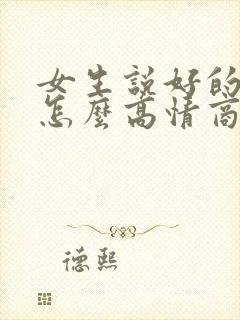 女生說好的
怎麼高情商
德熙